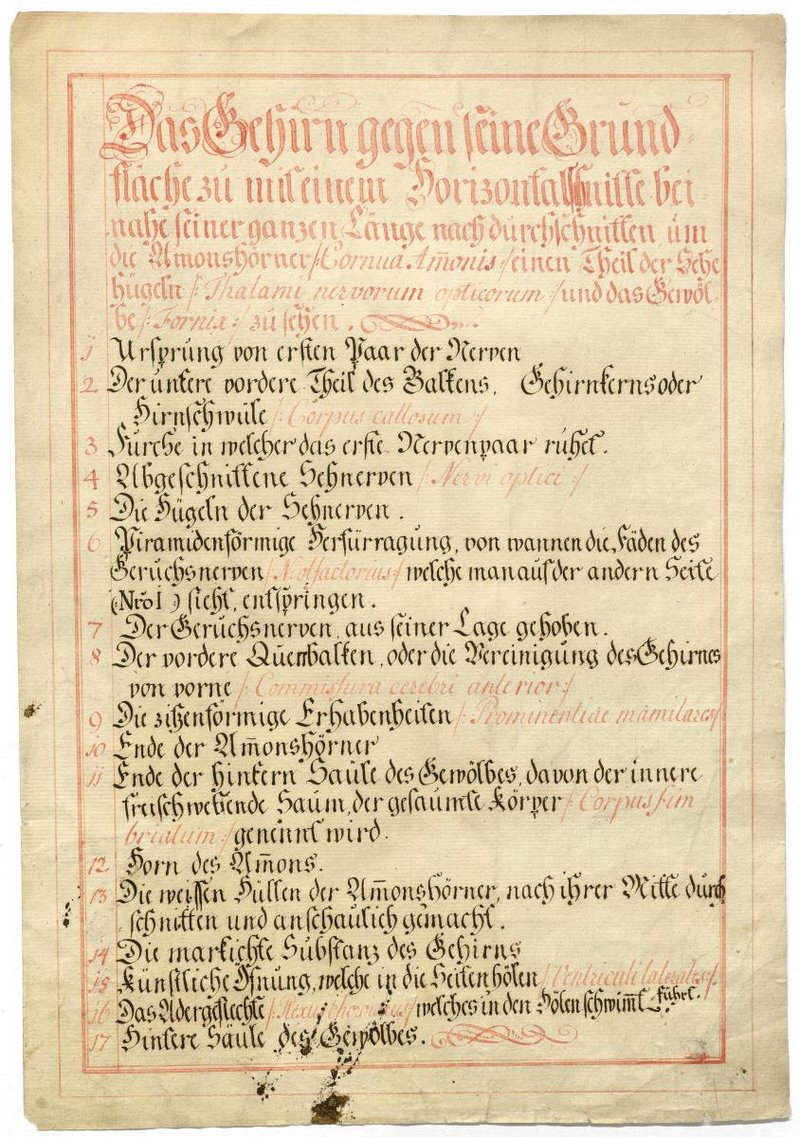 Das Gehirn gegen seine Grund
fläche zu mit einem Horizontalschnitte bei
nahe seiner ganzen Länge nach durchschnitten um
die Am̄onshörner /: Cornua Am̄onis :/ einen Theil der Sehe
hügeln /: Thalami nervorum opticorum :/ und das Gewöl
be /: Fornix :/ zu sehen .
1 Ursprung von ersten Paar der Nerven
2 Der untere vordere Theil des Balkens, Gehirnkerns oder
Hirnschwüle /: Corpus callosum :/
3 Furche in welcher das erste Nervenpaar ruhet.
4 Abgeschnittene Sehnerven /: Nervi optici :/
5 Die Hügeln der Sehnerven .
6 Piramidenförmige Herfürragung, von wannen die Fäden des
Geruchsnerven /: N olfactorius :/ welche man auf der andern Seite
(Nro I) sieht, entspringen .
7 Der Geruchsnerven, aus seiner Lage gehoben .
8 Der vordere Querrbalken, oder die Vereinigung des Gehirnes
von vorne /: Commistura cerebri anterior :/
9 Die zitzenförmige Erhabenheiten /: Prominentiae mam̄ilares :/
10 Ende der Am̄onshörner
11 Ende der hintern Saule des Gewölbes, davon der innere
freischwebende Saum, der gesaumte Körper /: Corpus fim
briatum :/ genennt wird .
12 Horn des Am̄ons .
13 Die weissen Hüllen der Am̄onshörner, nach ihrer Mitte durch
schnitten und anschaulich gemacht .
14 Die markichte Substanz des Gehirns
15 Künstliche Öfnung, welche in die Seitenhölen /: Ventriculi laterales :/ führt .
16 Das Adergeflechte /: Plexus choroideus :/ welches in den Hölen schwimt
17 Hintere Säule des Gewölbes .